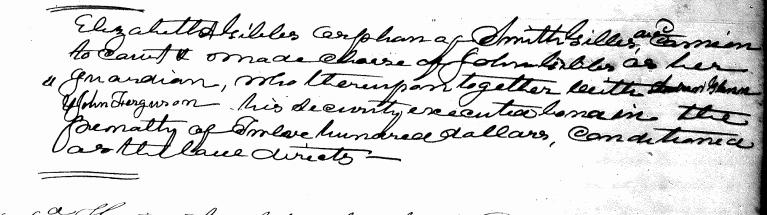 Elizabeth Gibbs orphan of Smith Gibbs, came in
to Court & made choice of John Gibbs as her
guardian, who thereupon together with
& John Ferguson his security executed bond in the
penalty of Twelve hundred dollars, conditioned
as the law directs —